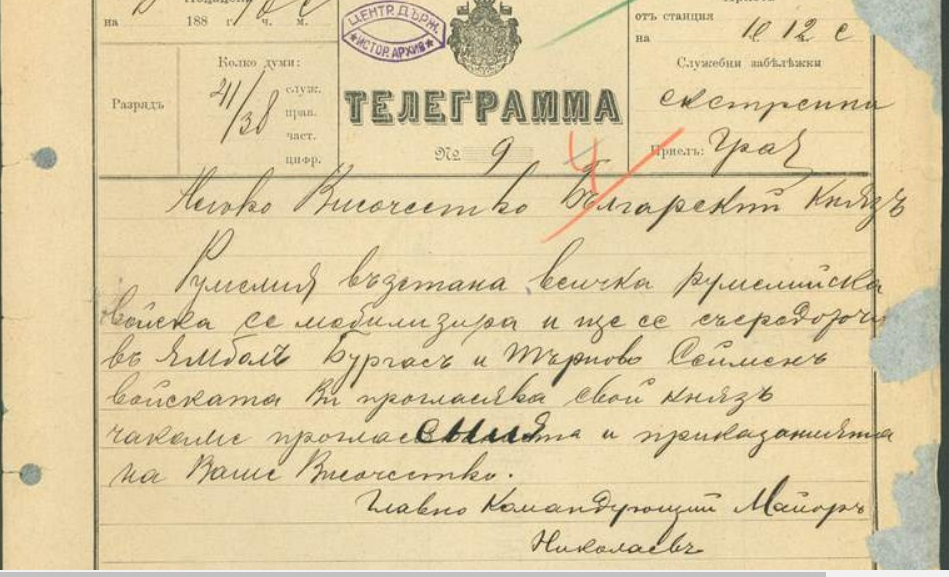 на 188 г. ч. м.
ЦЕНТР. ДЪРЖ.
ИСТОР. АРХИВ
отъ станция
на 10 12 с
Колко думи:
41/38
служ.
прав.
част.
цифр.
Разрядъ
ТЕЛЕГРАММА
№ 9
Служебни забѣлѣжки
екстренна
Приелъ:
Негово Височество Бѫлгарский Князъ
Румелия въдстана всичка румелийска
войска се мобилизира и ще се съсредоточи
въ Ямболъ Бургасъ и Търново Сейменъ
войската Ви прогласява свой князъ
чакаме и приказанията
на Ваше Височество.
Главно Командующий Майоръ
Николаевъ